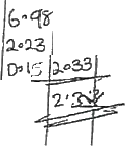 6.98
2.23
0.15 2.33